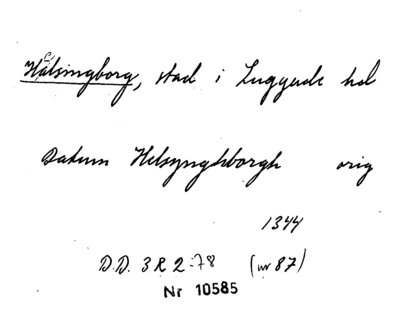 Hälsingborg, stad i Luggude hd
Datum Helsynghborgh orig
1344
D.D. 3 R 2:78 (nr 87)
Nr 10585